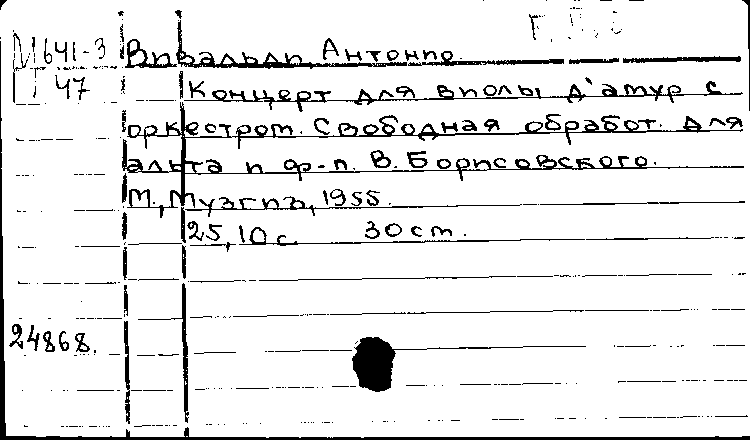 М641-3 Вивальди, Антонио.
Т 47 Концерт для виолы д'амур с
оркестром. Свободная обработ. для
альта и ф-п. В. Борисовского.
М., Музгиз, 1955.
25, 10 с. 30 cm.
24868.